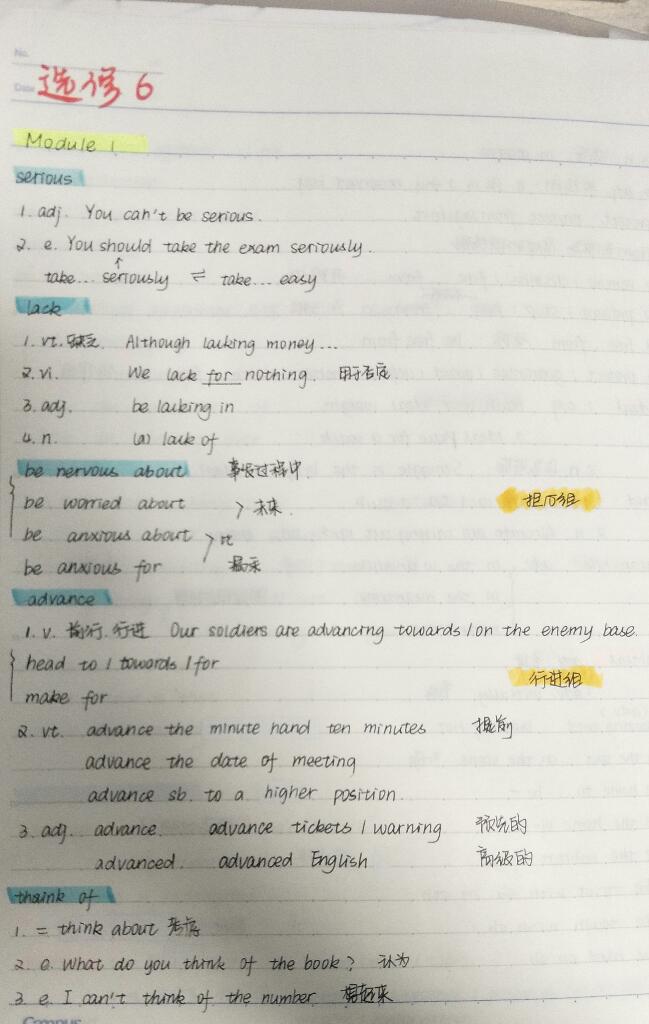 No.
Date
选修6
Module 1
serious
1. adj. You can't be serious.
2. e. You should take the exam seriously.
↑
take... seriously ⇌ take... easy
lack
1. vt. 缺乏 Although lacking money...
2. vi. We lack for nothing. 用于否定
3. adj. be lacking in
4. n. (a) lack of
be nervous about 事长过程中
be worried about > 未来 担心组
be anxious about > 比
be anxious for 渴求
advance
1. v. 前行. 行进 Our soldiers are advancing towards / on the enemy base.
head to / towards / for
行进组
make for
2. vt. advance the minute hand ten minutes 提前
advance the date of meeting
advance sb. to a higher position.
3. adj. advance. advance tickets / warning 预先的
advanced. advanced English 高级的
think of
1. = think about 考虑
2. e. What do you think of the book? 认为
3. e. I can't think of the number 想起来
Campus